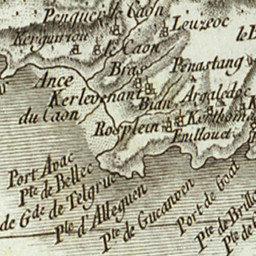 Penquer
le Caon
Leuzoc
Kerguiriou
le Caon
Bras
Penastang
Ance
du Caon
Kerlevenant
Bian
Argaledoc
Rosplein
Kerthoma
Enillouet
Port Avac
Pte de Bellec
de Gde de Telgruc
Pte d'Alleguen
Pte de Gucawen
Port de Goat
Pte de Brille
Pte de G